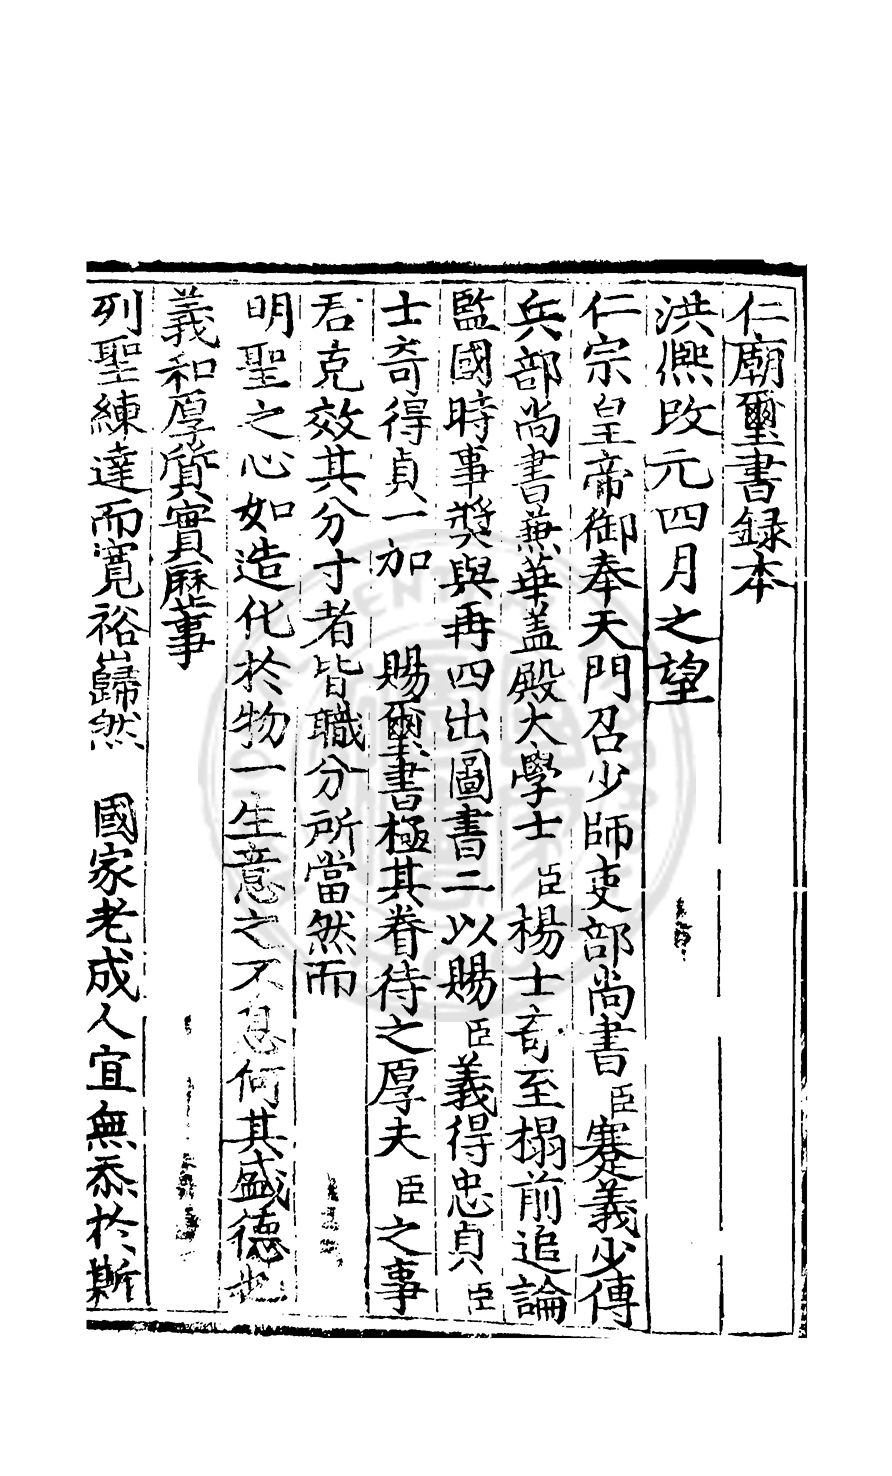 仁廟璽書録本
洪熙改元四月之望
仁宗皇帝御奉天門召少師吏部尚書臣蹇義少傅
兵部尚書兼華蓋殿大學士臣楊士奇至榻前追論
監國時事奬與再四出圖書二以賜臣義得忠貞臣
士奇得貞一加　賜璽書極其眷待之厚夫臣之事
君克效其分寸者皆職分所當然而
明聖之心如造化於物一生意之不息何其盛德也
義和厚質實歷事
列聖練達而寬裕巋然　國家老成人宜無忝於斯